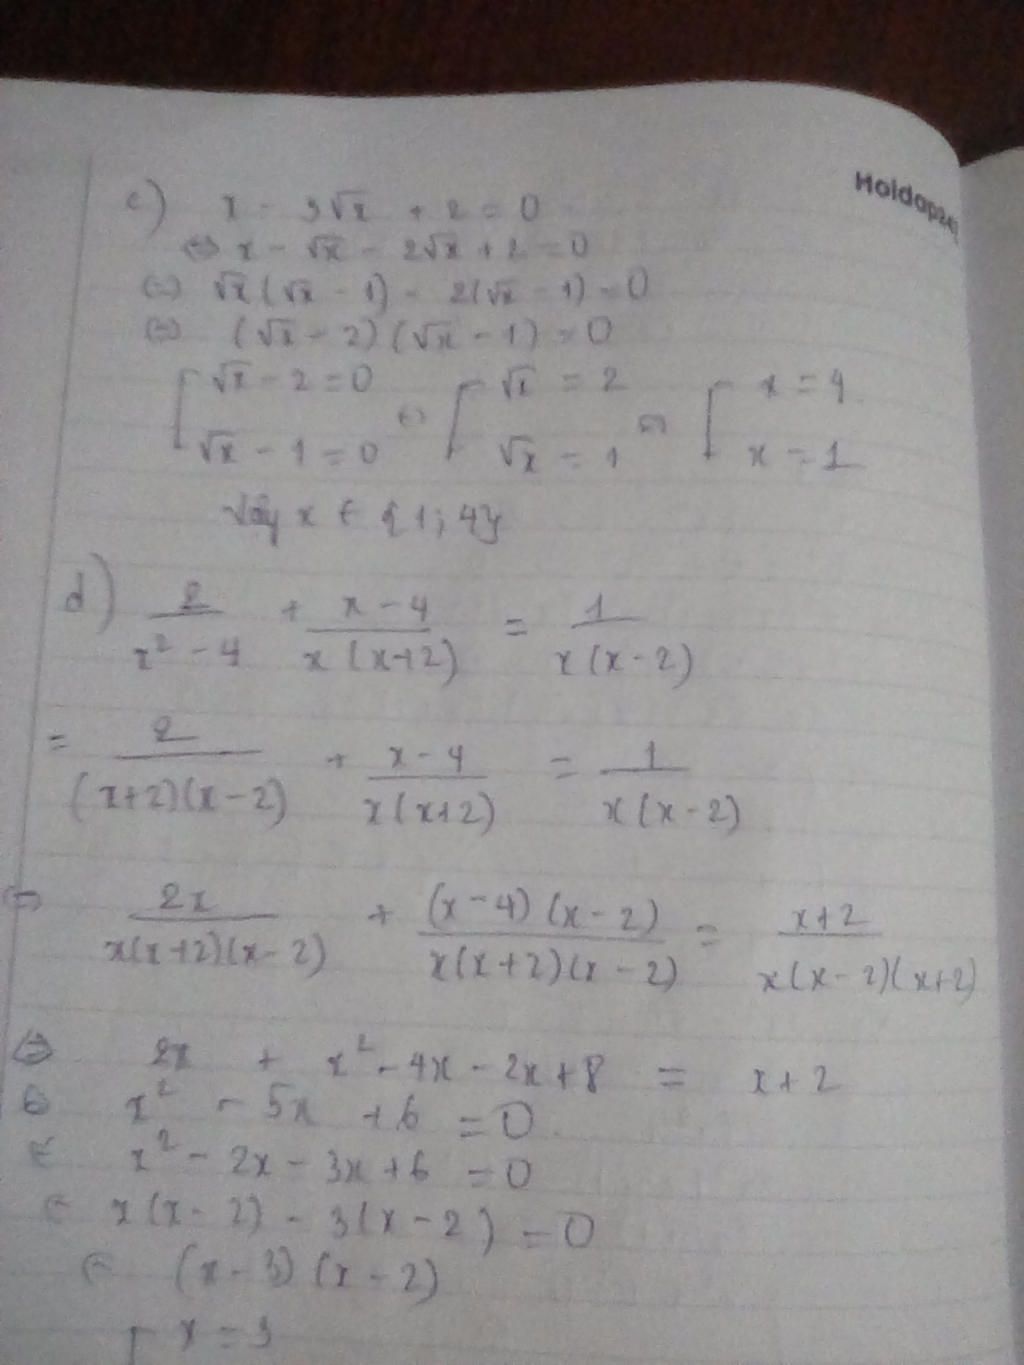 Hoidap247
c) x - 3√x + 2 = 0
⇔ x - √x - 2√x + 2 = 0
⇔ √x(√x - 1) - 2(√x - 1) = 0
⇔ (√x - 2)(√x - 1) = 0
[ √x - 2 = 0 ⇔ [ √x = 2 ⇔ [ x = 4
√x - 1 = 0 √x = 1 x = 1
Vậy x ∈ {1; 4}
d) 2/(x² - 4) + (x - 4)/(x(x+2)) = 1/(x(x-2))
= 2/((x+2)(x-2)) + (x-4)/(x(x+2)) = 1/(x(x-2))
⇔ 2x/(x(x+2)(x-2)) + (x-4)(x-2)/(x(x+2)(x-2)) = (x+2)/(x(x-2)(x+2))
⇔ 2x + x² - 4x - 2x + 8 = x + 2
⇔ x² - 5x + 6 = 0
⇔ x² - 2x - 3x + 6 = 0
⇔ x(x-2) - 3(x-2) = 0
⇔ (x-3)(x-2)
[ x = 3